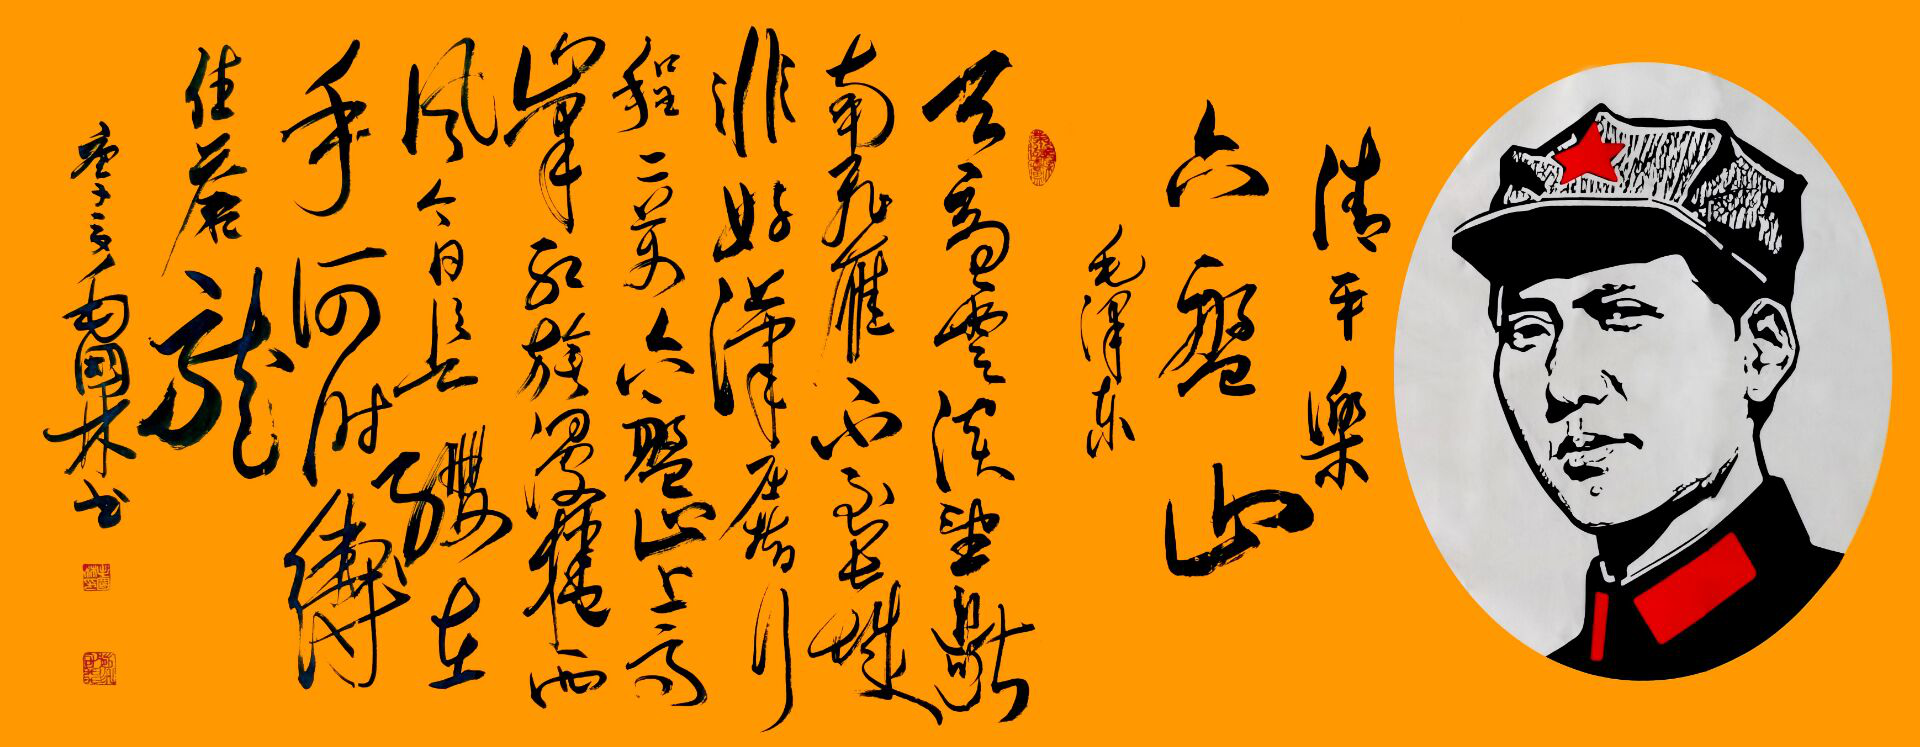 清平樂
六盤山
毛澤东
天高雲淡望斷
南飛雁不到長城
非好漢屈指行
程二萬六盤山上高
峯红旗漫捲西
風今日長纓在
手何时縛
住蒼龍
庚子國林书